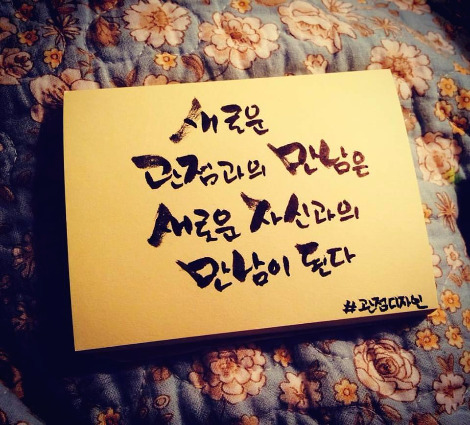 새로운
관점과의 만남은
새로운 자신과의
만남이 된다
#관점디자인